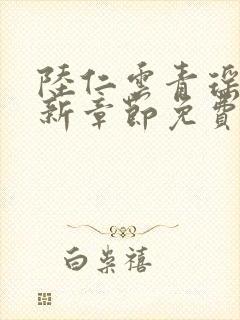 陸仁雲青瑶
新章節免費
白柴禧